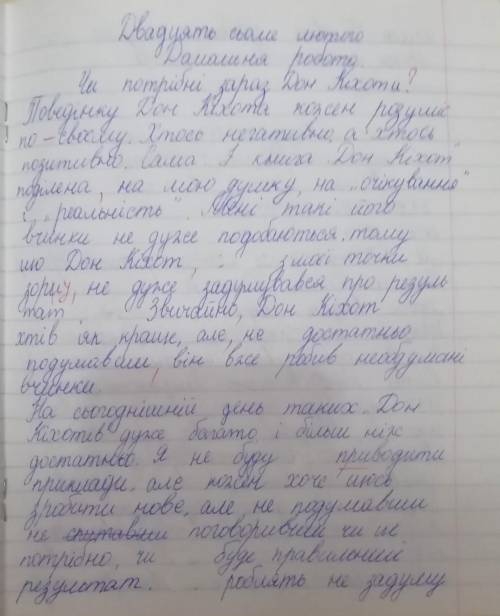 Двадцять сьоме лютого
Домашня робота.
Чи потрібні зараз Дон Кіхоти?
Поведінку Дон Кіхота кожен розуміє
по-своєму. Хтось негативно, а хтось
позитивно. Сама ж книга "Дон Кіхот"
поділена, на мою думку, на "очікування"
і "реальність". Мені такі його
вчинки не дуже подобаються, тому
що Дон Кіхот, з моєї точки
зору, не дуже задумувався про резуль
тат. Звичайно, Дон Кіхот
хтів як краще, але, не достатньо
подумавши, він вже робив необдумані
вчинки.
На сьогоднішній день таких Дон
Кіхотів дуже багато, і більш ніж
достатньо. Я не буду приводити
приклади, але кожен хоче щось
зробити нове, але, не подумавши
не спитавши поговоривши, чи це
потрібно, чи буде правильний
результат. роблять не задуму